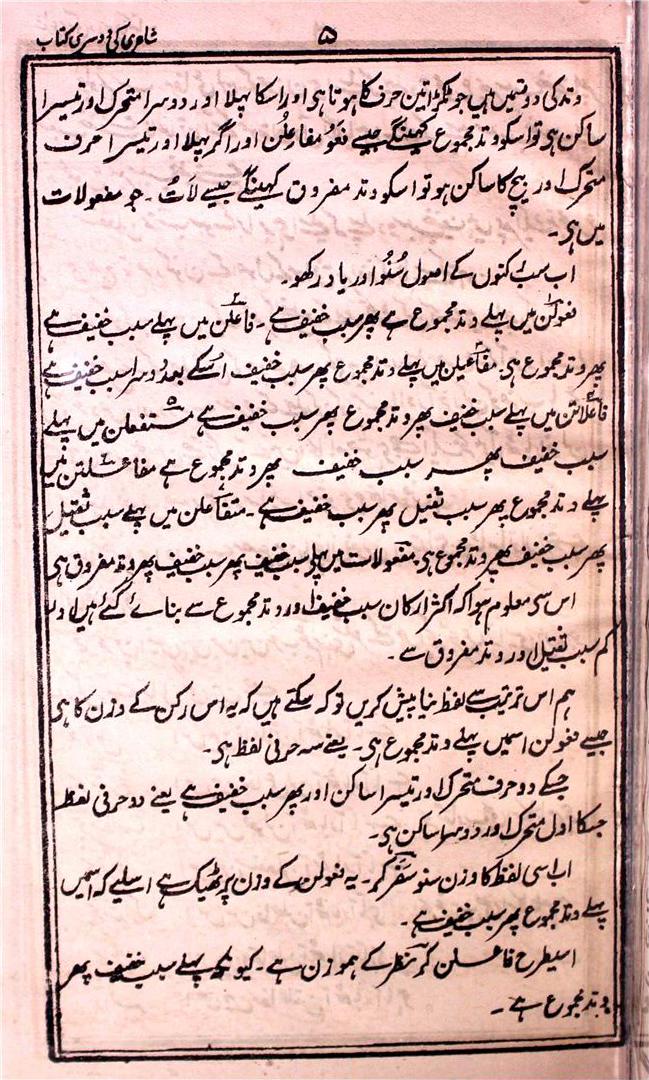 ۵ شاعری کی دوسری کتاب
وتد کی دو قسمیں ہیں جو ٹکڑا تین حرف کا ہوتا ہی اور اسکا پہلا اور دوسرا متحرک اور تیسرا
ساکن ہی تو اسکو وتد مجموع کہینگے جیسے فعو مفا علن اور اگر پہلا اور تیسرا حرف
متحرک اور بیچ کا ساکن ہو تو اسکو وتد مفروق کہینگے جیسے لاتُ ۔ جو مفعولات
میں ہی۔
اب سب رکنوں کے اصول سُنُو اور یاد رکھو۔
فعولن میں پہلے وتد مجموع ہے پھر سبب خفیف ہے ۔ فاعلن میں پہلے سبب خفیف ہے
پھر وتد مجموع ہی۔ مفاعیلن میں پہلے وتد مجموع پھر سبب خفیف اسکے بعد دوسرا سبب خفیف ہے
فاعلاتن میں پہلے سبب خفیف پھر وتد مجموع پھر سبب خفیف ہے ۵ مستفعلن میں پہلے
سبب خفیف پھر سبب خفیف پھر وتد مجموع ہے مفاعلتن میں
پہلے وتد مجموع پھر سبب ثقیل پھر سبب خفیف ہے ۔ متفاعلن میں پہلے سبب ثقیل
پھر سبب خفیف پھر وتد مجموع ہی مفعولات میں پہلے سبب خفیف پھر سبب خفیف پھر وتد مفروق ہی
اس سی معلوم ہوا کہ اکثر ارکان سبب خفیف اور وتد مجموع سے بنائے گئے ہیں اور
کم سبب ثقیل اور وتد مفروق سے ۔
ہم اس ترتیب سے لفظ نیا پیش کریں تو کہ سکتے ہیں کہ یہ اس رکن کے وزن کا ہی
جیسے فعولن اسمیں پہلے وتد مجموع ہی ۔ یعنے سہ حرفی لفظ ہی۔
جسکے دو حرف متحرک اور تیسرا ساکن اور پھر سبب خفیف ہے یعنے دو حرفی لفظ
جسکا اول متحرک اور دوسرا ساکن ہی۔
اب اسی لفظ کا وزن سنو سفر کر ۔ یہ فعولن کے وزن پر ٹھیک ہے اسلیے کہ اسمیں
پہلے وتد مجموع پھر سبب خفیف ہے ۔
اسیطرح فاعلن کر نظر کے ہموزن ہے ۔ کیونکہ پہلے سبب خفیف پھر
وتد مجموع ہے ۔